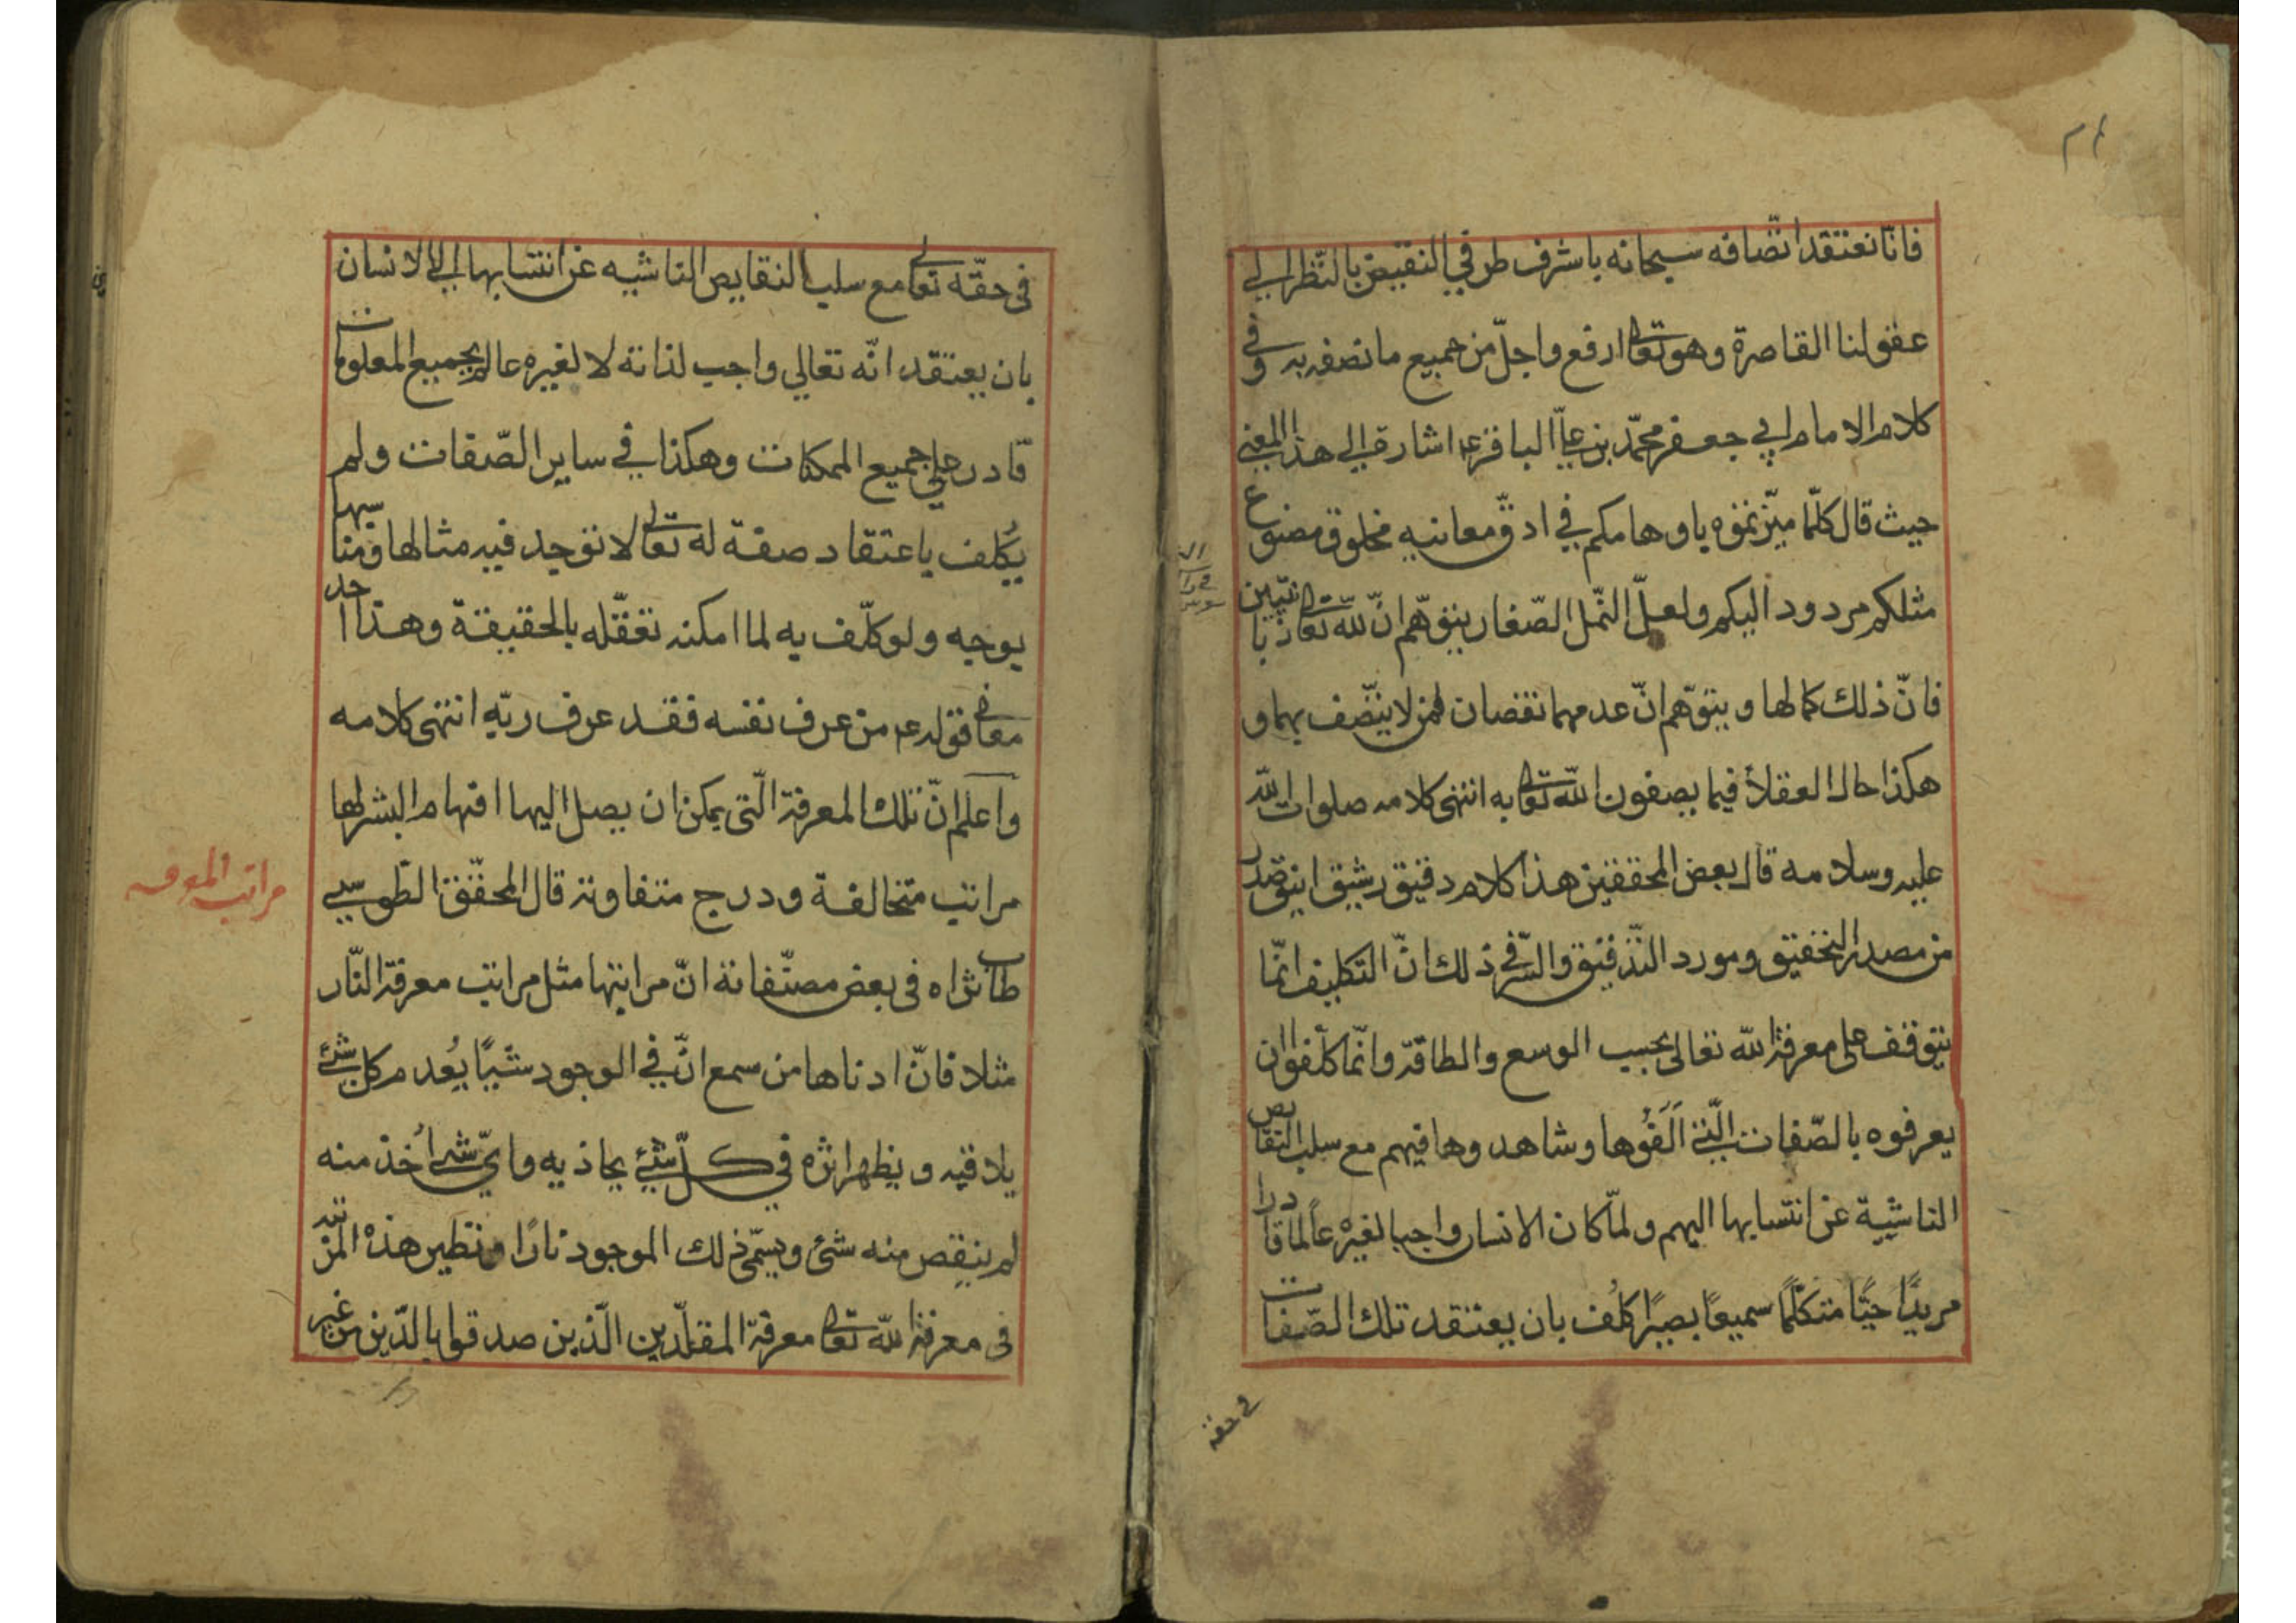 فانّا نعتقد اتّصافه سبحانه باشرف طرفي النقيض بالنّظر الي
عقولنا القاصرة وهو تعالى ارفع واجلّ من جميع ما نصفه به وفي
كلام الامام ابي جعفر محمّد بن عليّ الباقر ع اشارة الي هذا المعني
حيث قال كلّما ميّزتموه باوهامكم في ادقّ معانيه مخلوق مصنوع
مثلكم مردود اليكم ولعلّ النّمل الصّغار يتوهّم انّ للّه تعالى زبانيتين
فانّ ذلك كمالها ويتوهّم انّ عدمهما نقصان لمن لا يتّصف بهما و
هكذا حال العقلاء فيما يصفون اللّه تعالى به انتهى كلامه صلوات اللّه
عليه وسلامه قال بعض المحققين هذا كلام دقيق رشيق انيق صدر
من مصدر التحقيق ومورد التّدقيق والسّر في ذلك انّ التكليف انّما
يتوقف على معرفة اللّه تعالى بحسب الوسع والطاقة وانّما كلّفوا ان
يعرفوه بالصّفات الّتي اَلَفُوها وشاهدوها فيهم مع سلب النقايص
الناشية عن انتسابها اليهم ولمّا كان الانسان واجبا لغيره عالما قادرا
مريدًا حيًّا متكلّمًا سميعًا بصيرًا كلُف بان يعتقد تلك الصّفات
في حقه
في حقّه تعالى مع سلب النقايص الناشيه عن انتسابها الي الانسان
بان يعتقد انّه تعالي واجب لذاته لا لغيره عالم بجميع المعلومات
قادر علي جميع الممكنات وهكذا في ساير الصّفات ولم
يُكلف باعتقاد صفة له تعالى لا توجد فيه مثالها ومناسبها
بوجه ولو كلّف به لما امكنه تعقّله بالحقيقة وهذا احد
معاني قوله ع من عرف نفسه فقد عرف ربّه انتهى كلامه
واعلم انّ تلك المعرفة الّتي يمكن ان يصل اليها افهام البشر لها
مراتب متخالفة ودرج متفاوتة قال المحقّق الطّوسي
طاب ثراه في بعض مصنّفاته انّ مراتبها مثل مراتب معرفة النّار
مثلا فانّ ادناها من سمع انّ في الوجود شيئًا يُعدم كل شئ
يلاقيه ويظهر اثره في كلّ شئ يحاذيه وايّ شئ اُخذ منه
لم ينقص منه شئ ويسمّى ذلك الموجود نارًا ونظير هذه المرتبة
في معرفة اللّه تعالى معرفة المقلّدين الّذين صدقوا بالدّين من غير
مراتب المعرفه